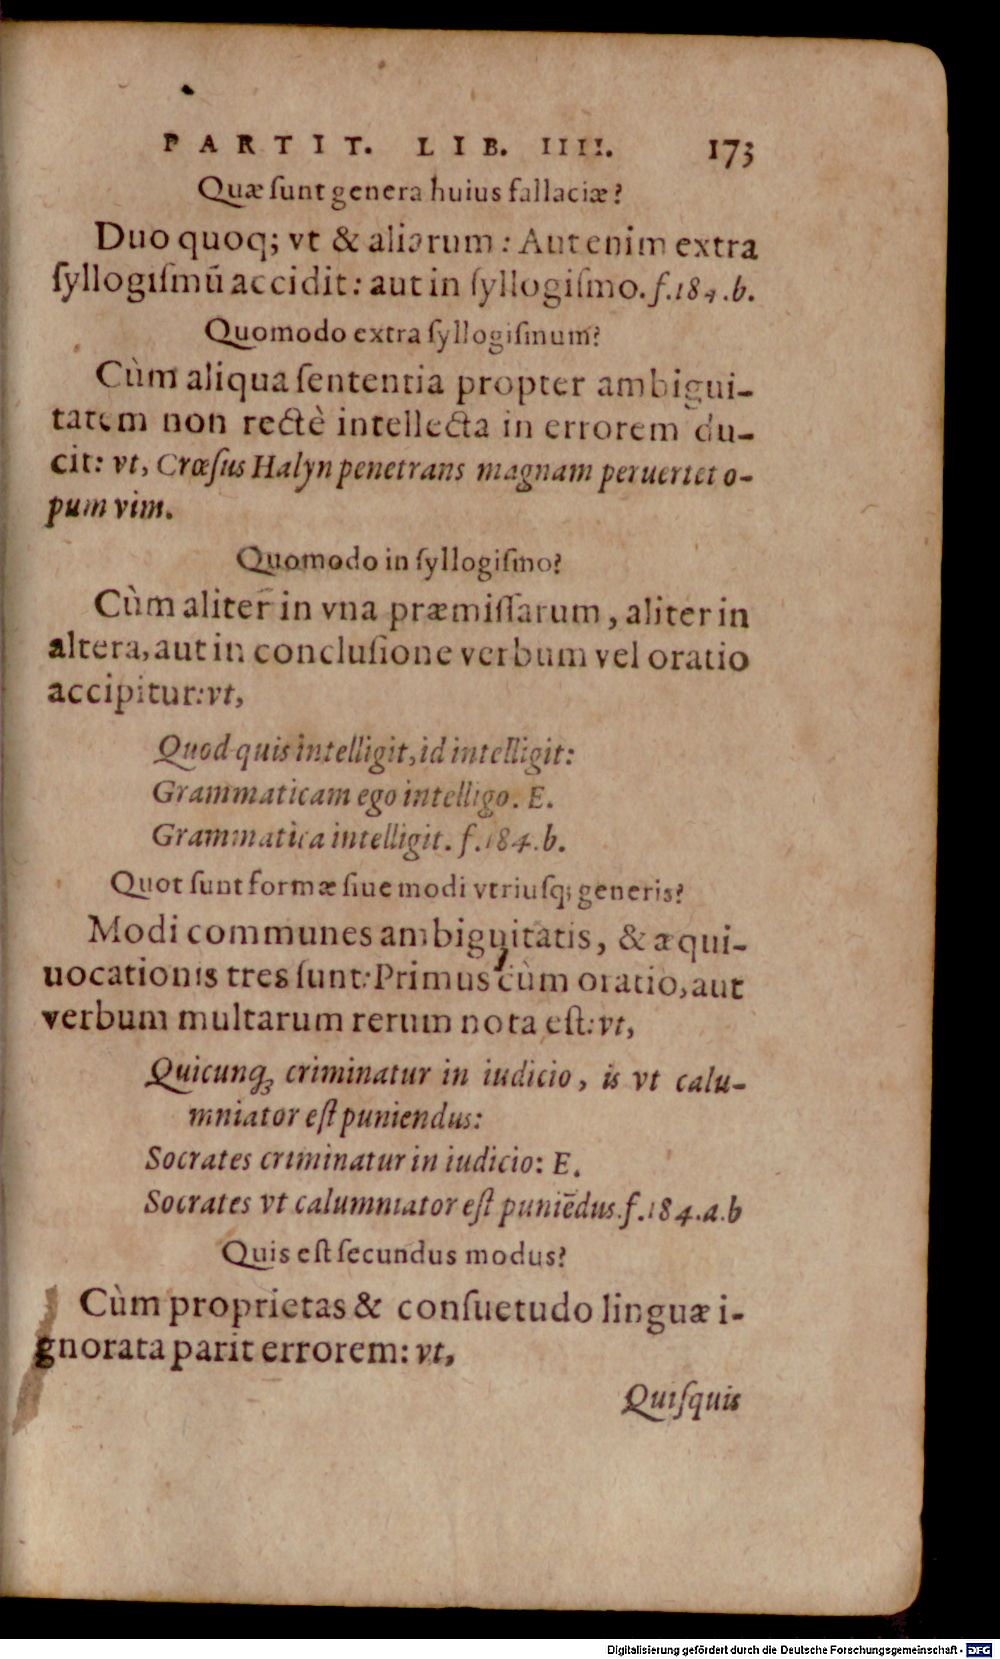 PARTIT. LIB. IIII. 173
Quæ ſunt genera huius fallaciæ?
Duo quoq; vt & aliarum: Aut enim extra
ſyllogiſmũ accidit: aut in ſyllogiſmo. f.184.b.
Quomodo extra ſyllogiſmum?
Cùm aliqua ſententia propter ambigui-
tatem non rectè intellecta in errorem du-
cit: vt, Crœſus Halyn penetrans magnam peruertet o-
pum vim.
Quomodo in ſyllogiſmo?
Cùm aliter in vna præmiſſarum, aliter in
altera, aut in concluſione verbum vel oratio
accipitur: vt,
Quod quis intelligit, id intelligit:
Grammaticam ego intelligo. E.
Grammatica intelligit. f.184.b.
Quot ſunt formæ ſiue modi vtriuſq; generis?
Modi communes ambiguitatis, & æqui-
uocationis tres ſunt: Primus cùm oratio, aut
verbum multarum rerum nota eſt: vt,
Quicunq; criminatur in iudicio, is vt calu-
mniator eſt puniendus:
Socrates criminatur in iudicio: E.
Socrates vt calumniator eſt puniẽdus. f.184.a.b
Quis eſt ſecundus modus?
Cùm proprietas & conſuetudo linguæ i-
gnorata parit errorem: vt,
Quiſquis
Digitalisierung gefördert durch die Deutsche Forschungsgemeinschaft - DFG